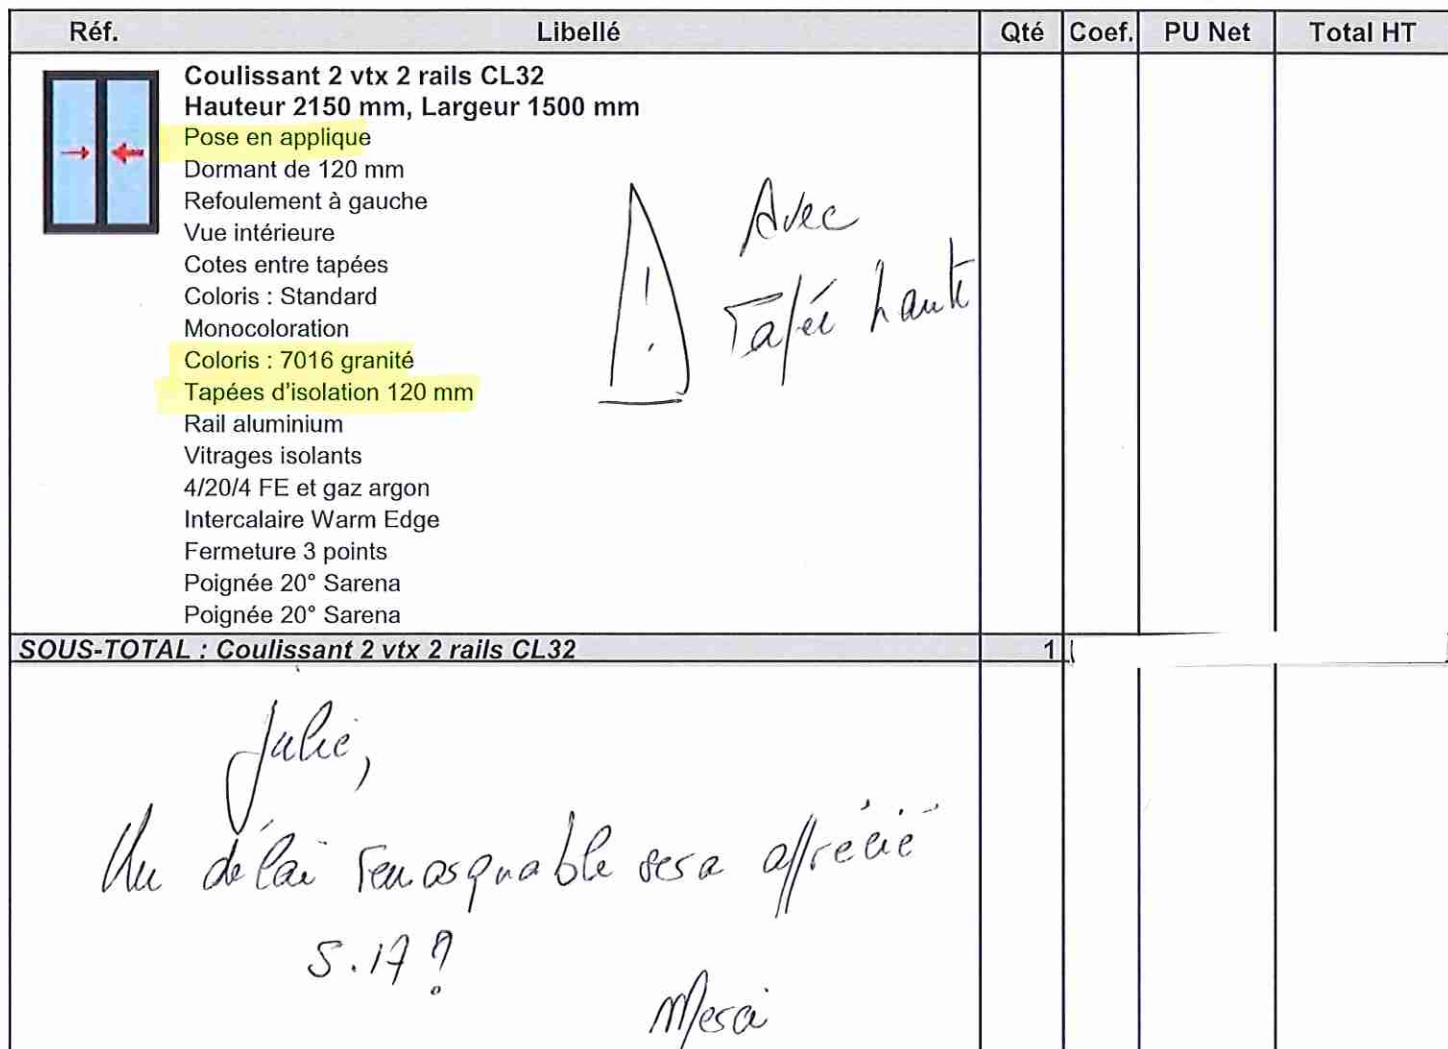 Réf. Libellé Qté Coef. PU Net Total HT
Coulissant 2 vtx 2 rails CL32
Hauteur 2150 mm, Largeur 1500 mm
Pose en applique
Dormant de 120 mm
Refoulement à gauche
Vue intérieure
Cotes entre tapées
Coloris : Standard
Monocoloration
Coloris : 7016 granité
Tapées d'isolation 120 mm
Rail aluminium
Vitrages isolants
4/20/4 FE et gaz argon
Intercalaire Warm Edge
Fermeture 3 points
Poignée 20° Sarena
Poignée 20° Sarena
!
Avec
Tapée haute
SOUS-TOTAL : Coulissant 2 vtx 2 rails CL32 1
Julie,
Un délai remarquable sera apprécié
S.17 ?
Merci